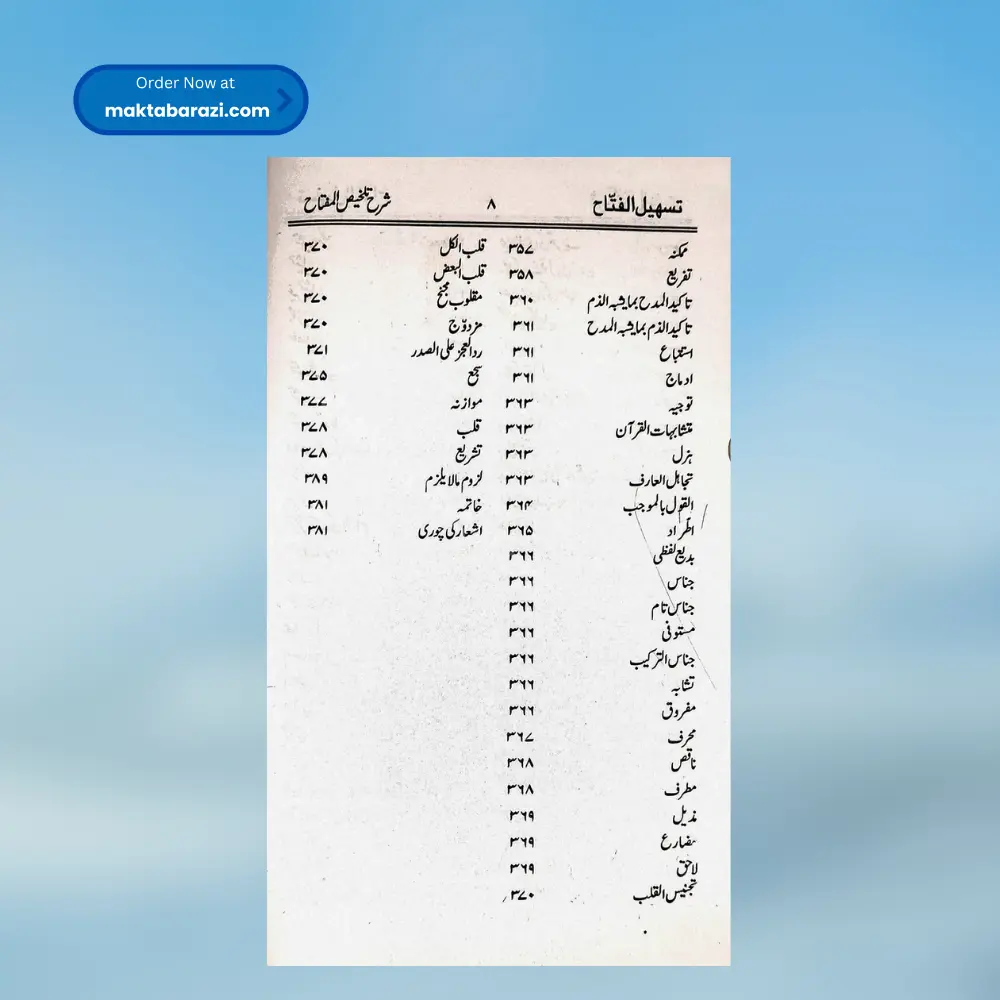 Order Now at
maktabarazi.com
تسهیل الفتّاح ۸ شرح تلخیص المفتاح
ممکنہ ۳۵۷
تفریع ۳۵۸
تاکید المدح بمایشبہ الذم ۳۶۰
تاکید الذم بمایشبہ المدح ۳۶۱
استتباع ۳۶۱
ادماج ۳۶۱
توجیہ ۳۶۳
متشابہات القرآن ۳۶۳
ہزل ۳۶۳
تجاہل العارف ۳۶۳
القول بالموجب ۳۶۴
اطّراد ۳۶۵
بدیع لفظی ۳۶۶
جناس ۳۶۶
جناس تام ۳۶۶
مستوفی ۳۶۶
جناس الترکیب ۳۶۶
تشابہ ۳۶۶
مفروق ۳۶۶
محرف ۳۶۷
ناقص ۳۶۸
مطرف ۳۶۸
مذیل ۳۶۹
مضارع ۳۶۹
لاحق ۳۶۹
تجنیس القلب ۳۷۰
قلب الکل ۳۷۰
قلب البعض ۳۷۰
مقلوب مجنح ۳۷۰
مزدوّاج ۳۷۰
ردالعجز علی الصدر ۳۷۱
سجع ۳۷۵
موازنہ ۳۷۷
قلب ۳۷۸
تشریع ۳۷۸
لزوم مالایلزم ۳۸۹
خاتمہ ۳۸۱
اشعار کی چوری ۳۸۱